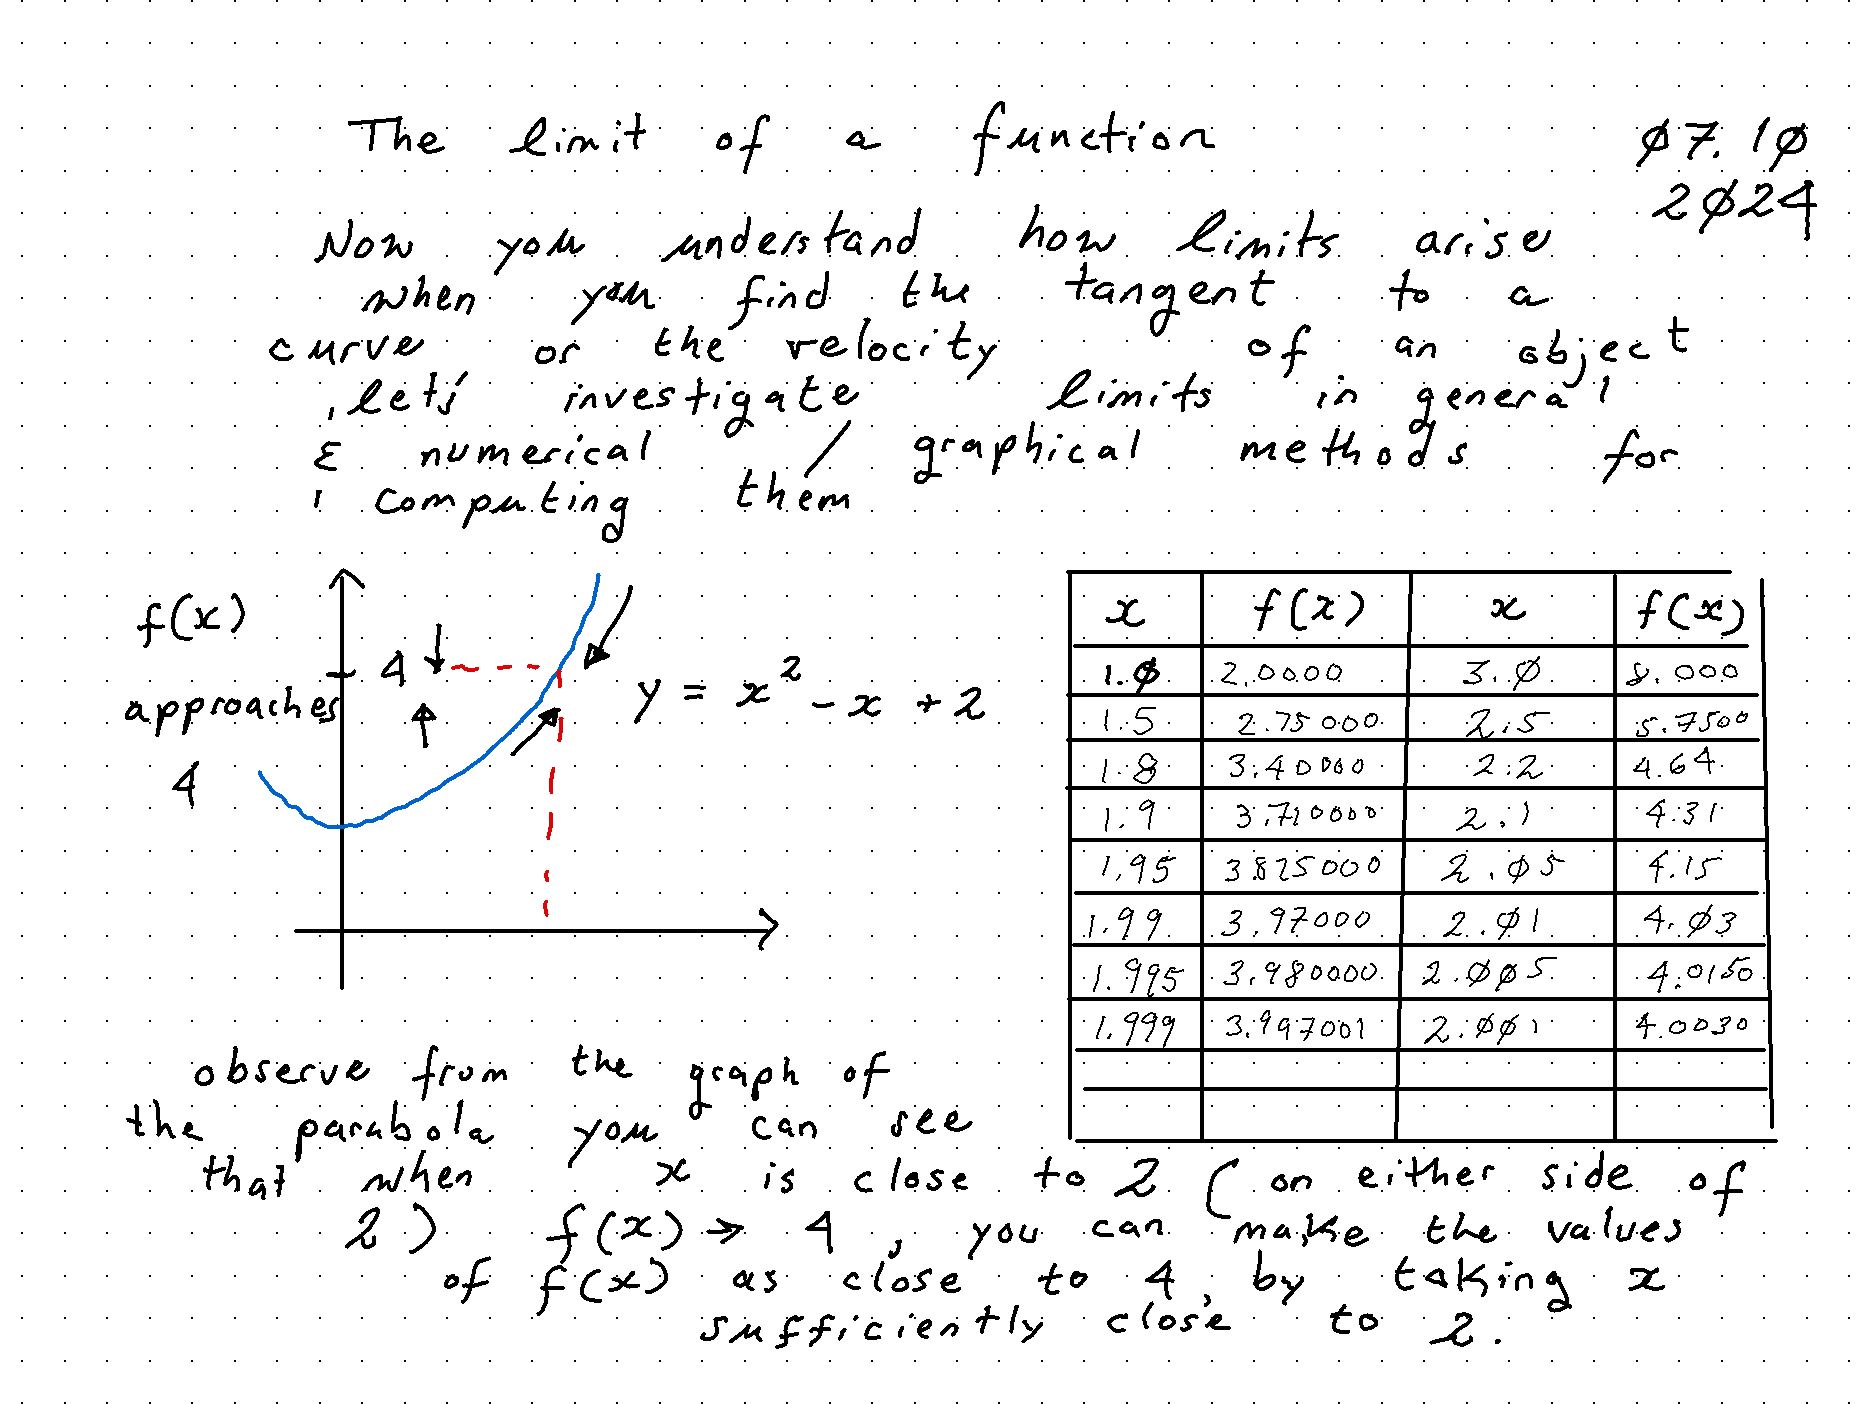 The limit of a function
07.10
2024
Now you understand how limits arise
when you find the tangent to a
curve or the velocity of an object
, let's investigate limits in general
& numerical / graphical methods for
computing them
f(x)
approaches
4
4
y = x² - x + 2
x f(x) x f(x)
1.0 2.0000 3.0 8.000
1.5 2.75000 2.5 5.7500
1.8 3.40000 2.2 4.64
1.9 3.710000 2.1 4.31
1.95 3.825000 2.05 4.15
1.99 3.97000 2.01 4.03
1.995 3.980000 2.005 4.0150
1.999 3.997001 2.001 4.0030
observe from the graph of
the parabola you can see
that when x is close to 2 (on either side of
2) f(x) → 4, you can make the values
of f(x) as close to 4, by taking x
sufficiently close to 2.